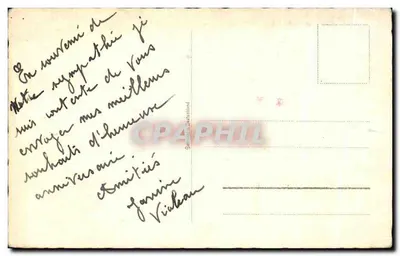 En souvenir de
Notre sympathie je
suis contente de vous
envoyer mes meilleurs
souhaits d'heureux
anniversaire.
Amitiés
Janine
CPArama.com